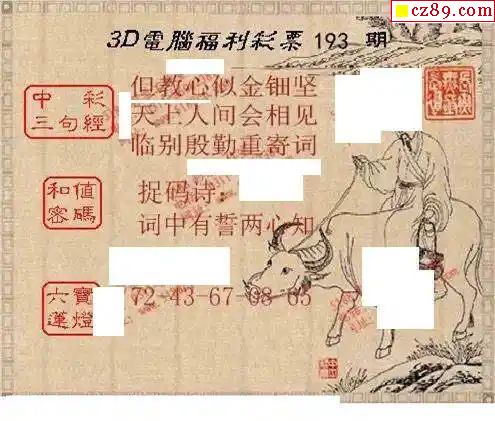 cz89.com
3D電腦福利彩票 193 期
中彩
三句經
但教心似金钿坚
天上人间会相见
临别殷勤重寄词
和值
密碼
捉码诗:
词中有誓两心知
六寶
蓮燈
72-43-67-08-65